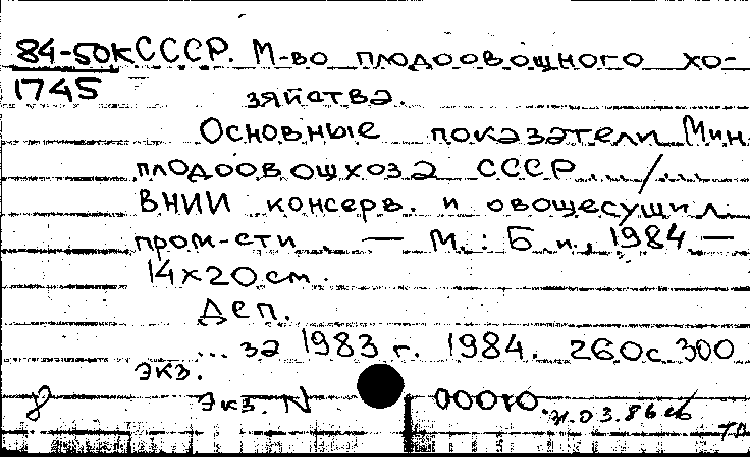 84-50к СССР. М-во плодоовощного хо-
1745
зяйства.
Основные показатели Мин
плодоовощхоза СССР ... / ...
ВНИИ консерв. и овощесушил.
пром-сти. — М.: Б.и., 1984 —
14х20см.
Деп.
... за 1983 г. 1984. 260с. 300
экз.
8 Экз. N 00010.
03.86